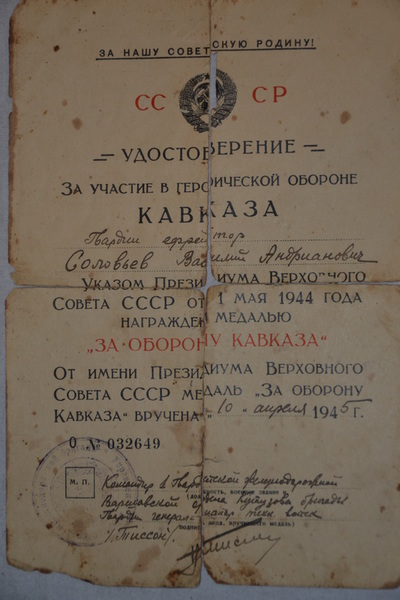 ЗА НАШУ СОВЕТСКУЮ РОДИНУ!
СССР
УДОСТОВЕРЕНИЕ
ЗА УЧАСТИЕ В ГЕРОИЧЕСКОЙ ОБОРОНЕ
КАВКАЗА
Гвардии ефрейтор
Соловьев Василий Андрианович
УКАЗОМ ПРЕЗИДИУМА ВЕРХОВНОГО
СОВЕТА СССР ОТ 1 МАЯ 1944 ГОДА
НАГРАЖДЕН МЕДАЛЬЮ
„ЗА ОБОРОНУ КАВКАЗА“
ОТ ИМЕНИ ПРЕЗИДИУМА ВЕРХОВНОГО
СОВЕТА СССР МЕДАЛЬ „ЗА ОБОРОНУ
КАВКАЗА“ ВРУЧЕНА „10“ апреля 1945 г.
О № 032649
М. П.
Командир 1 Гвардейской железнодорожной
Варшавской ордена Кутузова бригады
Гвардии генерал-майор техн. войск
/Тиссон/